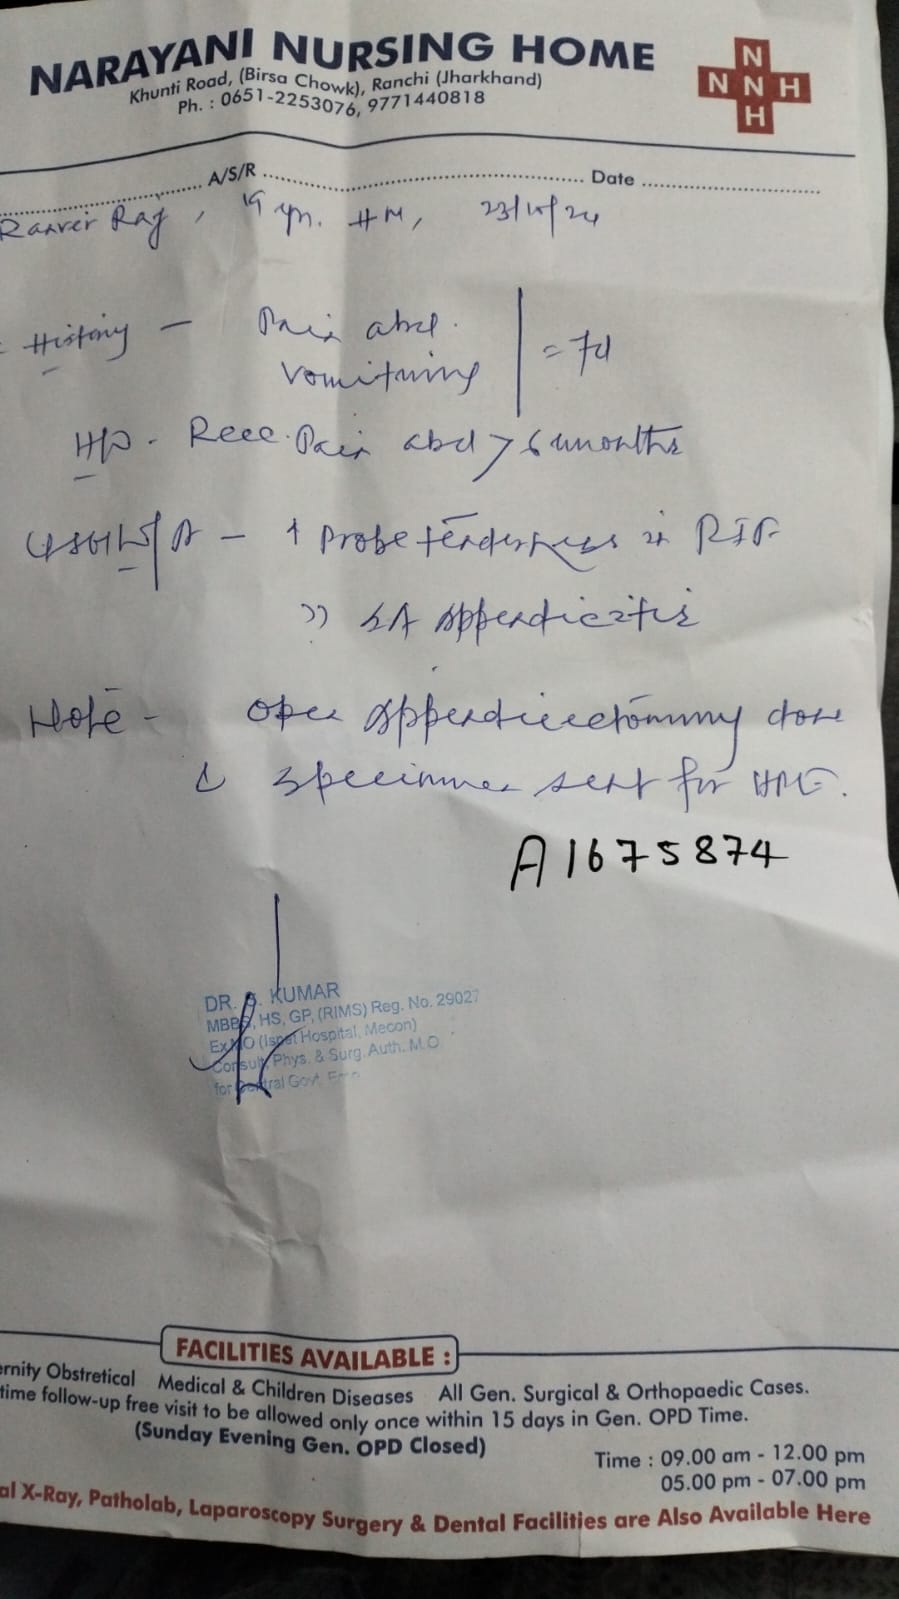 NARAYANI NURSING HOME
Khunti Road, (Birsa Chowk), Ranchi (Jharkhand)
Ph. : 0651-2253076, 9771440818
N
N N H
H
A/S/R Date
Raj, 19 yr. HM, 23/10/24
History - Pain abd.
vomitning = 7d
H/O - Recc. Pain abd > 6 months
USG W/A - ↑ Probe tenderness in RIF
appendicitis
Note - open appendicectommy done
specimmen sent for HPE.
A1675874
DR. KUMAR
MBBS, HS, GP, (RIMS) Reg. No. 29027
Ex.MO (Ispat Hospital, Mecon)
Consult. Phys. & Surg. Auth. M.O
for Central Govt.
FACILITIES AVAILABLE :
Obstretical Medical & Children Diseases All Gen. Surgical & Orthopaedic Cases.
time follow-up free visit to be allowed only once within 15 days in Gen. OPD Time.
(Sunday Evening Gen. OPD Closed)
Time : 09.00 am - 12.00 pm
05.00 pm - 07.00 pm
X-Ray, Patholab, Laparoscopy Surgery & Dental Facilities are Also Available Here